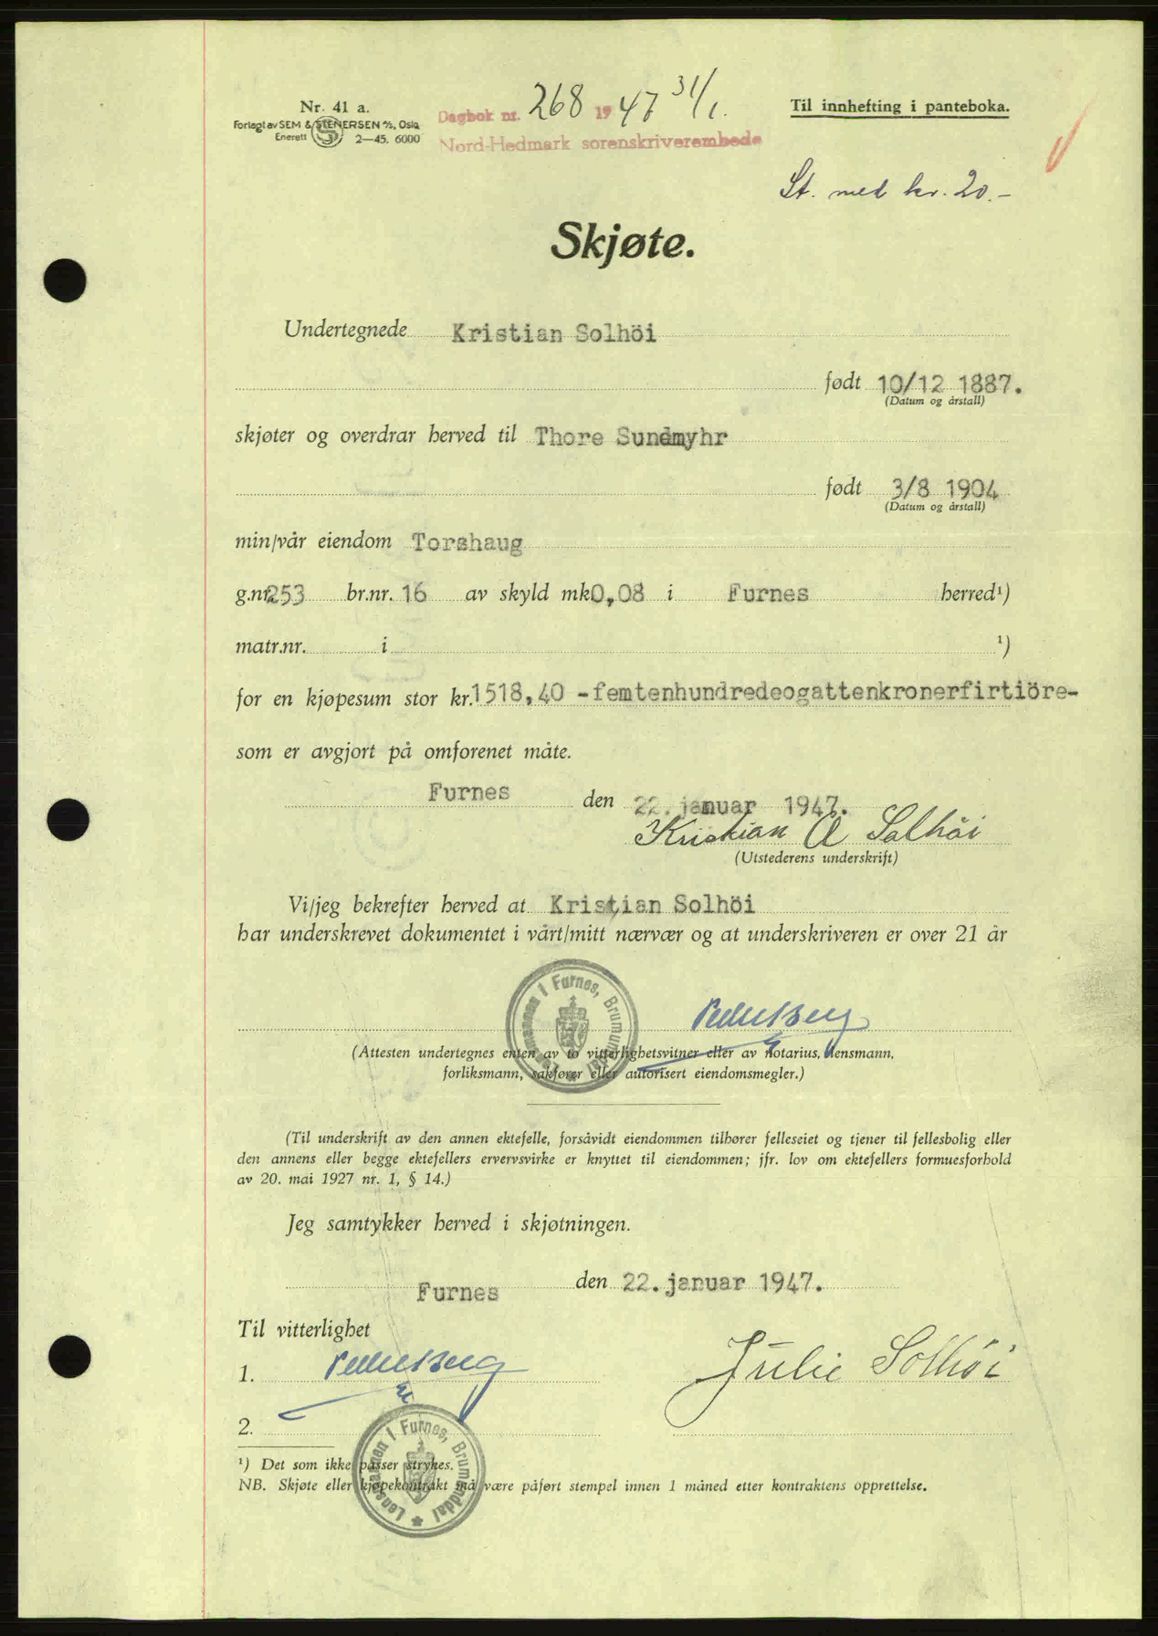 Nr. 41 a.
Forlagt av SEM & STENERSEN A/S, Oslo
Enerett 2—45. 6000
Dagbok nr. 268 1947 31/1.
Nord-Hedmark sorenskriverembede
Til innhefting i panteboka.
St. med kr. 20.-
Skjøte.
Undertegnede Kristian Solhöi
født 10/12 1887.
(Datum og årstall)
skjøter og overdrar herved til Thore Sundmyhr
født 3/8 1904
(Datum og årstall)
min/vår eiendom Torshaug
g.nr. 253 br.nr. 16 av skyld mk 0,08 i Furnes herred¹)
matr.nr. i ¹)
for en kjøpesum stor kr. 1518,40 -femtenhundredeogattenkronerfirtiöre-
som er avgjort på omforenet måte.
Furnes den 22. januar 1947.
Kristian A Solhöi
(Utstederens underskrift)
Vi/jeg bekrefter herved at Kristian Solhöi
har underskrevet dokumentet i vårt/mitt nærvær og at underskriveren er over 21 år
Lensmannen i Furnes, Brumunddal
(Attesten undertegnes enten av to vitterlighetsvitner eller av notarius, lensmann,
forliksmann, sakfører eller autorisert eiendomsmegler.)
(Til underskrift av den annen ektefelle, forsåvidt eiendommen tilhører felleseiet og tjener til fellesbolig eller
den annens eller begge ektefellers ervervsvirke er knyttet til eiendommen; jfr. lov om ektefellers formuesforhold
av 20. mai 1927 nr. 1, § 14.)
Jeg samtykker herved i skjøtningen.
Furnes den 22. januar 1947.
Til vitterlighet
1.
Julie Solhöi
2.
Lensmannen i Furnes, Brumunddal
¹) Det som ikke passer strykes.
NB. Skjøte eller kjøpekontrakt må være påført stempel innen 1 måned etter kontraktens opprettelse.